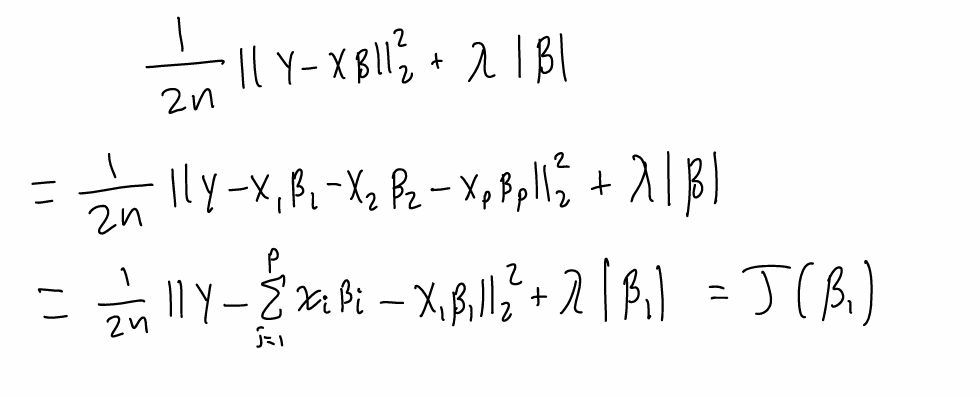 1/2n ||Y - Xβ||₂² + λ|β|
= 1/2n ||Y - X₁β₁ - X₂β₂ - Xₚβₚ||₂² + λ|β|
= 1/2n ||Y - Σⱼ₌₁ᵖ xᵢβᵢ - X₁β₁||₂² + λ|β₁| = J(β₁)